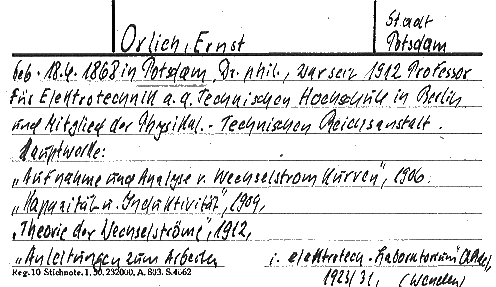 Stadt
Potsdam
Orlich, Ernst
geb. 18.4. 1868 in Potsdam, Dr. phil., war seit 1912 Professor
für Elektrotechnik a. d. Technischen Hochschule in Berlin
und Mitglied der Physikal.-Technischen Reichsanstalt.
Hauptwerke:
„Aufnahme und Analyse v. Wechselstrom Kurven", 1906.
„Kapazität u. Induktivität", 1909,
„Theorie der Wechselströme", 1912,
„Anleitungen zum Arbeiten i. elektrotech. Laboratorium"
1923/31, (wenden)
Reg. 10 Stichnote. 1. 30. 232000. A. 803. S. 4062